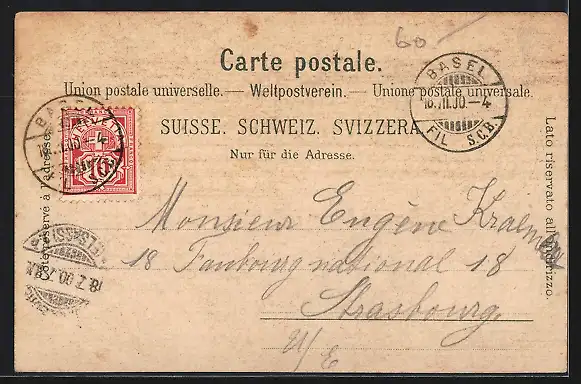 60
Carte postale.
Union postale universelle. — Weltpostverein. — Unione postale universale.
SUISSE. SCHWEIZ. SVIZZERA.
Nur für die Adresse.
Côté réservé à l'adresse.
Lato riservato all'indirizzo.
BASEL
18.VII.00.–4
FIL S.C.B.
BASEL
HELVETIA
10
18.7.00.
Monsieur Eugène
18 Faubourg national 18
Strasbourg.
i/E